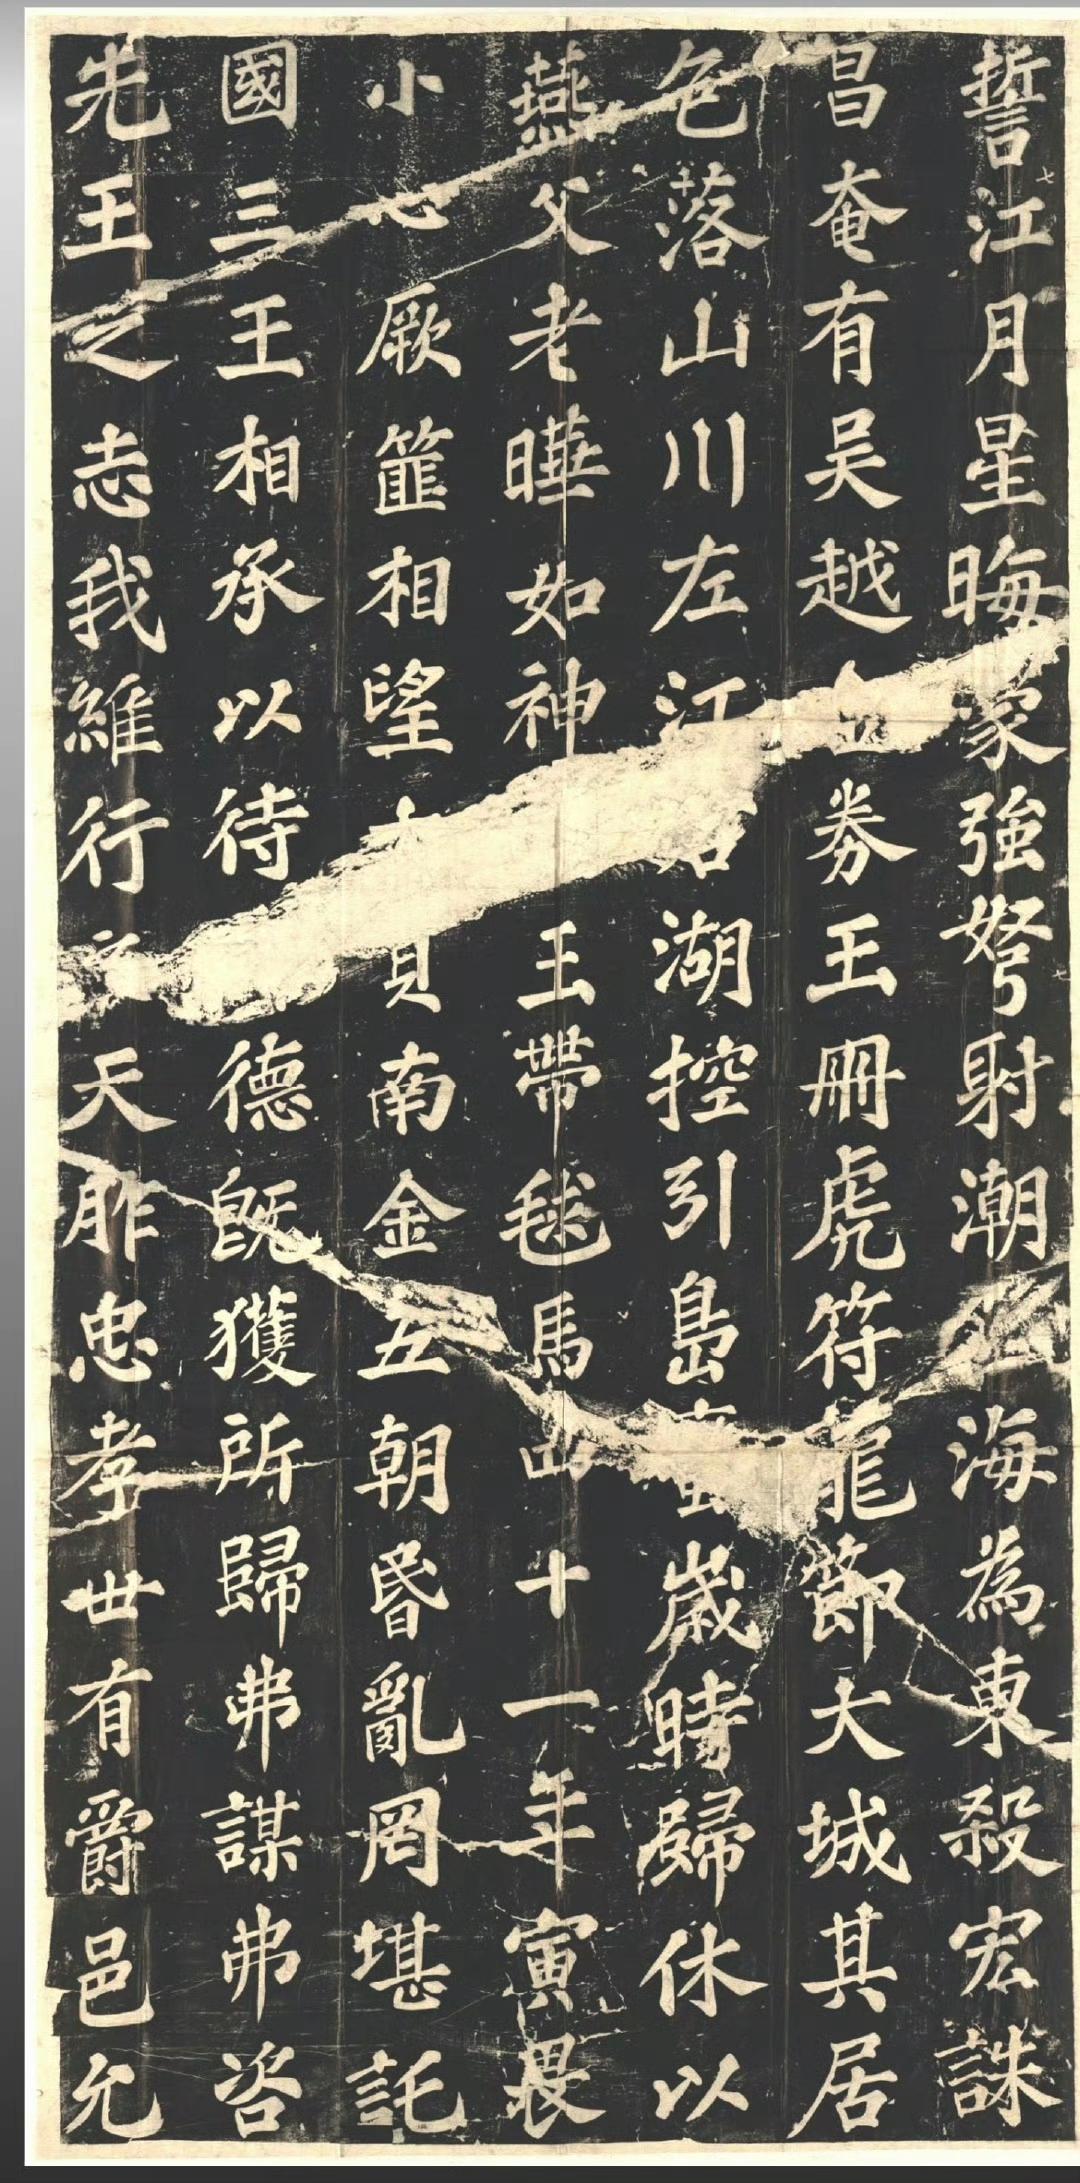 誓江月星晦蒙強弩射潮海為東殺宏誅
昌奄有吳越券玉冊虎符龍節大城其居
包落山川左江湖控引島歲時歸休以
燕父老曄如神玉帶毬馬四十一年寅畏
小心厥篚相望貝南金五朝昏亂罔堪託
國三王相承以待德既獲所歸弗謀弗咨
先王之志我維行天胙忠孝世有爵邑允